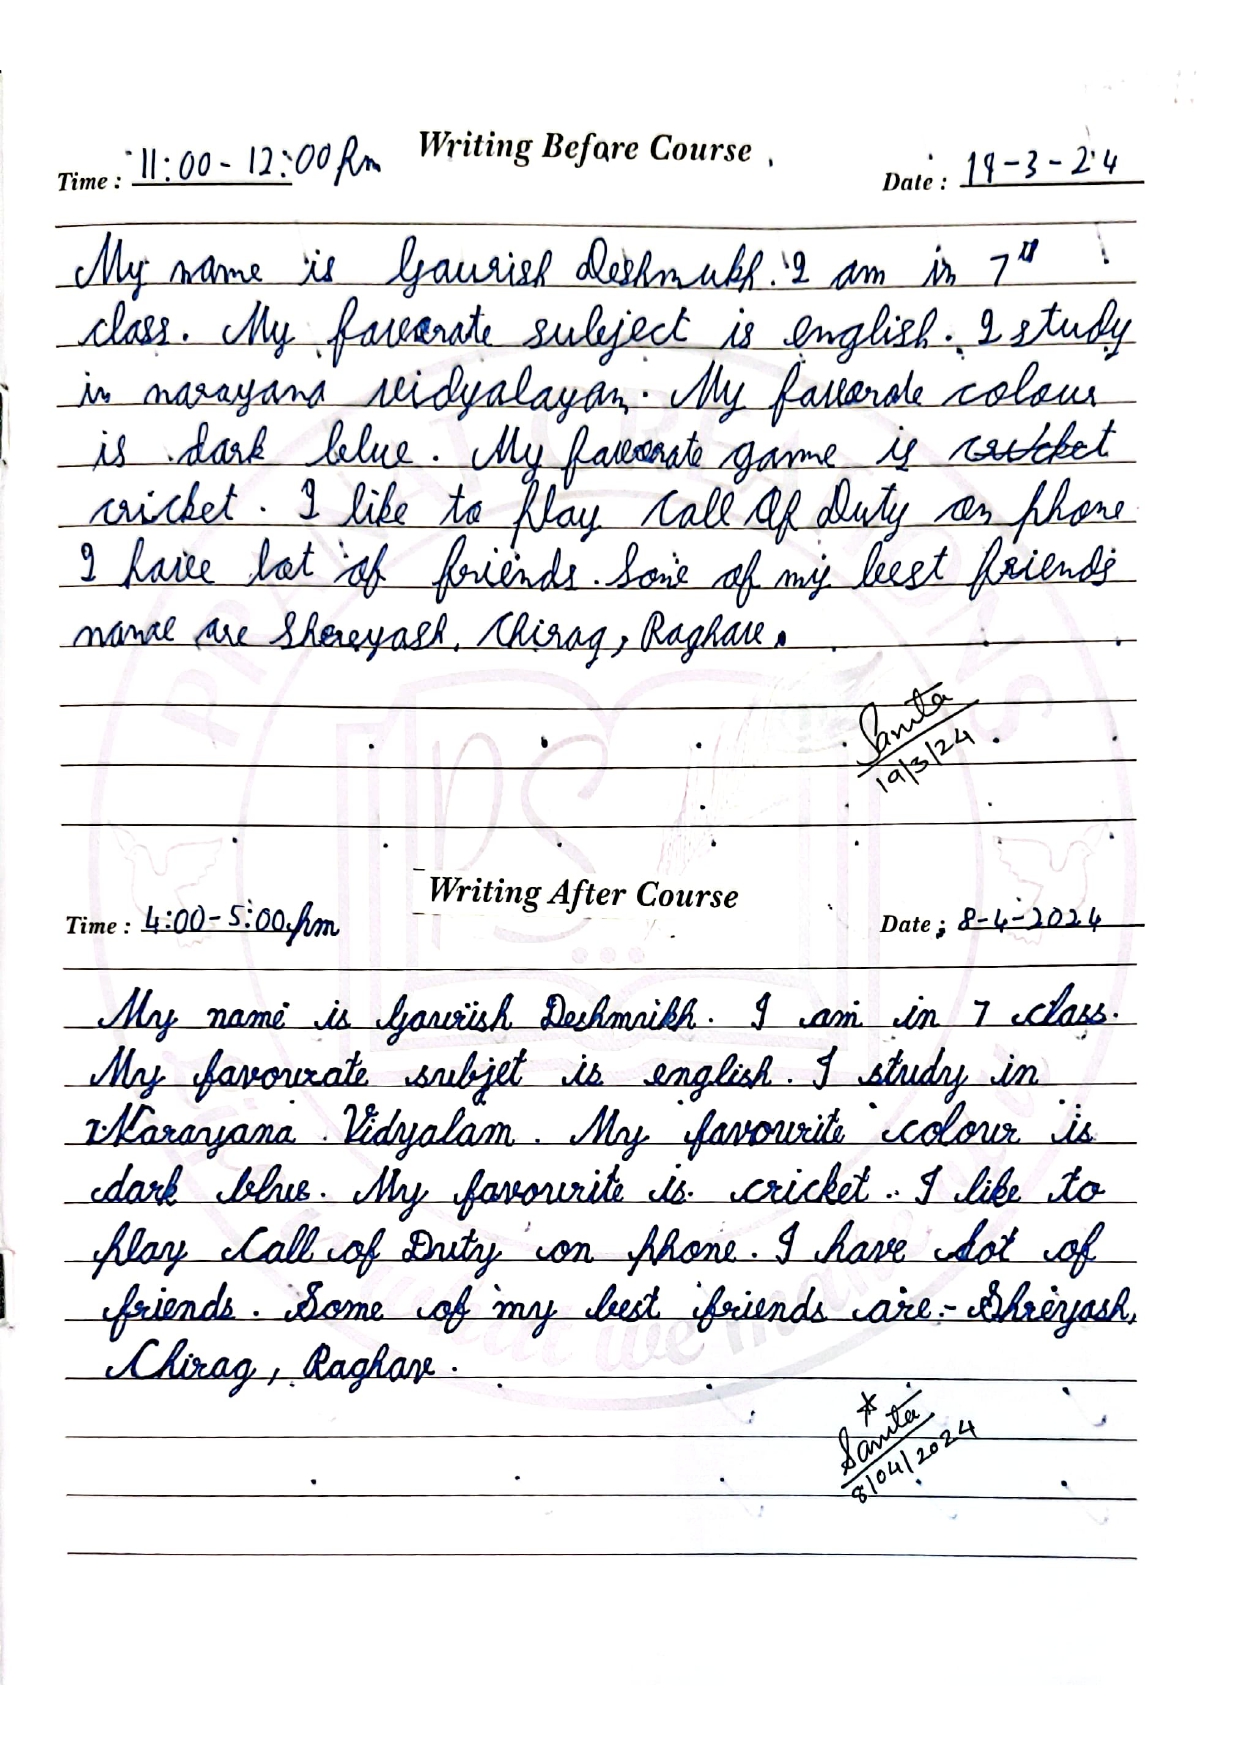 Writing Before Course
Time : 11:00 - 12:00 Pm Date : 19-3-24
My name is Gaurish Deshmukh. I am in 7th
class. My favorate subject is english. I study
in narayana vidyalayam. My favorate colour
is dark blue. My favorate game is cricket
cricket. I like to play Call Of Duty on phone
I have lot of friends. Some of my best friends
name are Shreyash, Chirag, Raghave.
Sarita
19/3/24
Writing After Course
Time : 4:00-5:00.pm Date : 8-4-2024
My name is Gaurish Deshmukh. I am in 7 class.
My favourate subjet is english. I study in
Narayana Vidyalam. My favourite colour is
dark blue. My favourite is cricket. I like to
play Call of Duty on phone. I have lot of
friends. Some of my best friends are:- Shreyash,
Chirag, Raghav.
Sarita
8/04/2024